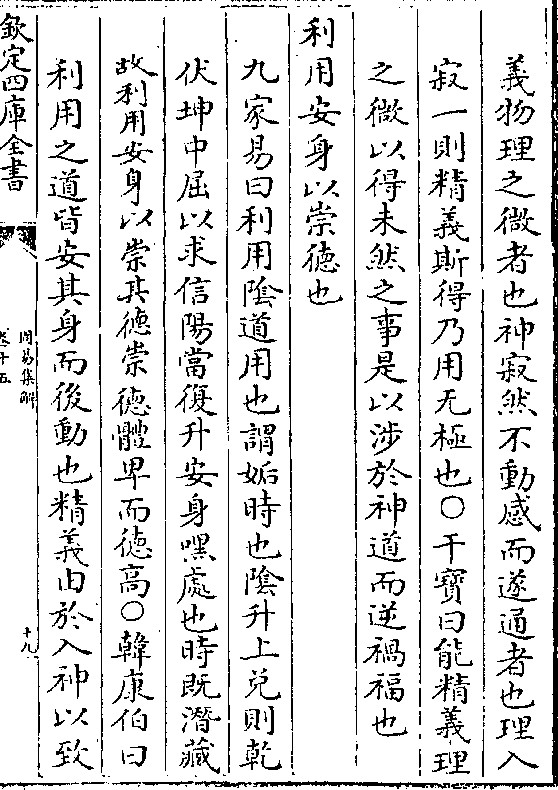 義物理之微者也神寂然不動感而遂通者也理入
寂一則精義斯得乃用无極也○干寶曰能精義理
之微以得未然之事是以涉於神道而逆禍福也
利用安身以崇德也
九家易曰利用隂道用也謂姤時也隂升上兌則乾
伏坤中屈以求信陽當復升安身嘿處也時既潛藏
故利用安身以崇其德崇德體卑而德高○韓康伯曰
利用之道皆安其身而後動也精義由於入神以致
欽定四庫全書
周易集解
卷十五
十九